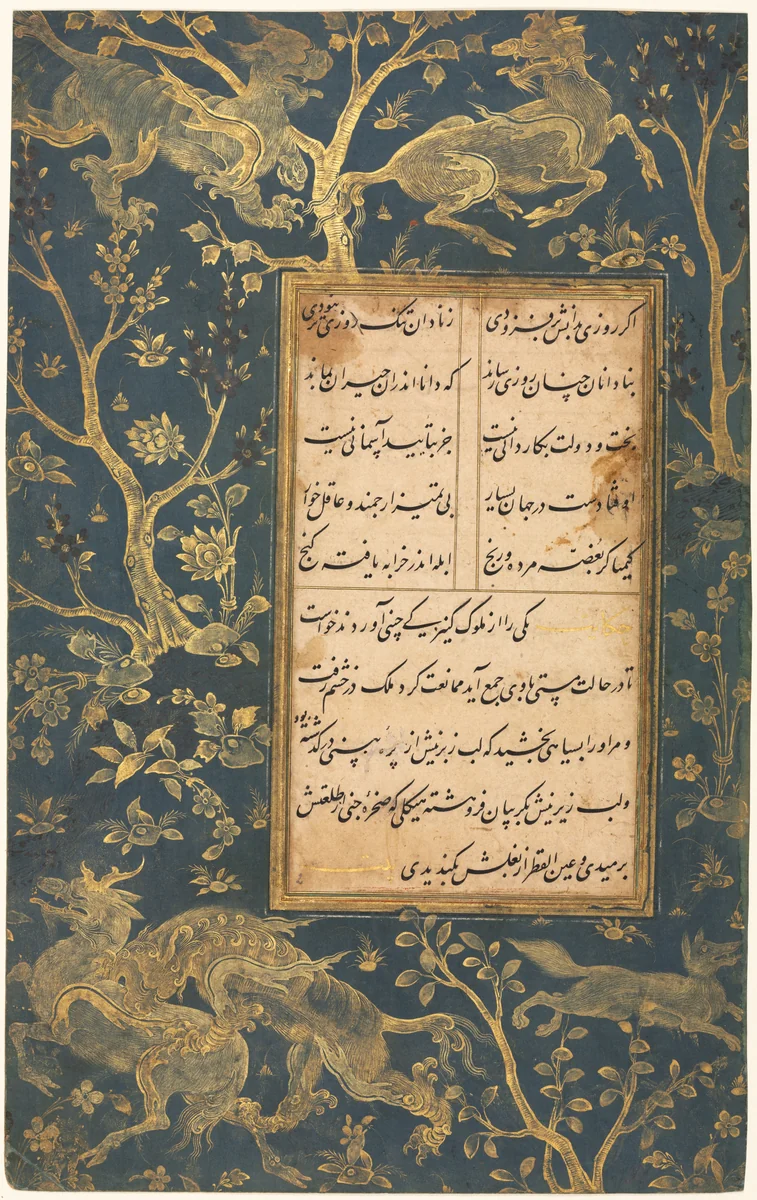 اکر روزی بدانش برفزودی زنادان تنک روزی تر نبودی
بنادانان چنان روزی رساند که دانا اندران حیران بماند
بخت و دولت بکاردانی نیست جز بتایید آسمانی نیست
اوفتادست در جهان بسیار بی تمیز ارجمند و عاقل خوار
کیمیاکر بغصه مرده و رنج ابله اندر خرابه یافته کنج
یکی را از ملوک کنیزکی چینی آوردند خواست
تا در حالت مستی با وی جمع آید ممانعت کرد ملک در خشم رفت
و مر او را بسیاهی بخشید که لب زبرینش از پره بینی درکذشته بود
ولب زیرینش بکریبان فروهشته هیکلی که صخره جنی از طلعتش
برمیدی و عین القطر از بغلش بکندیدی